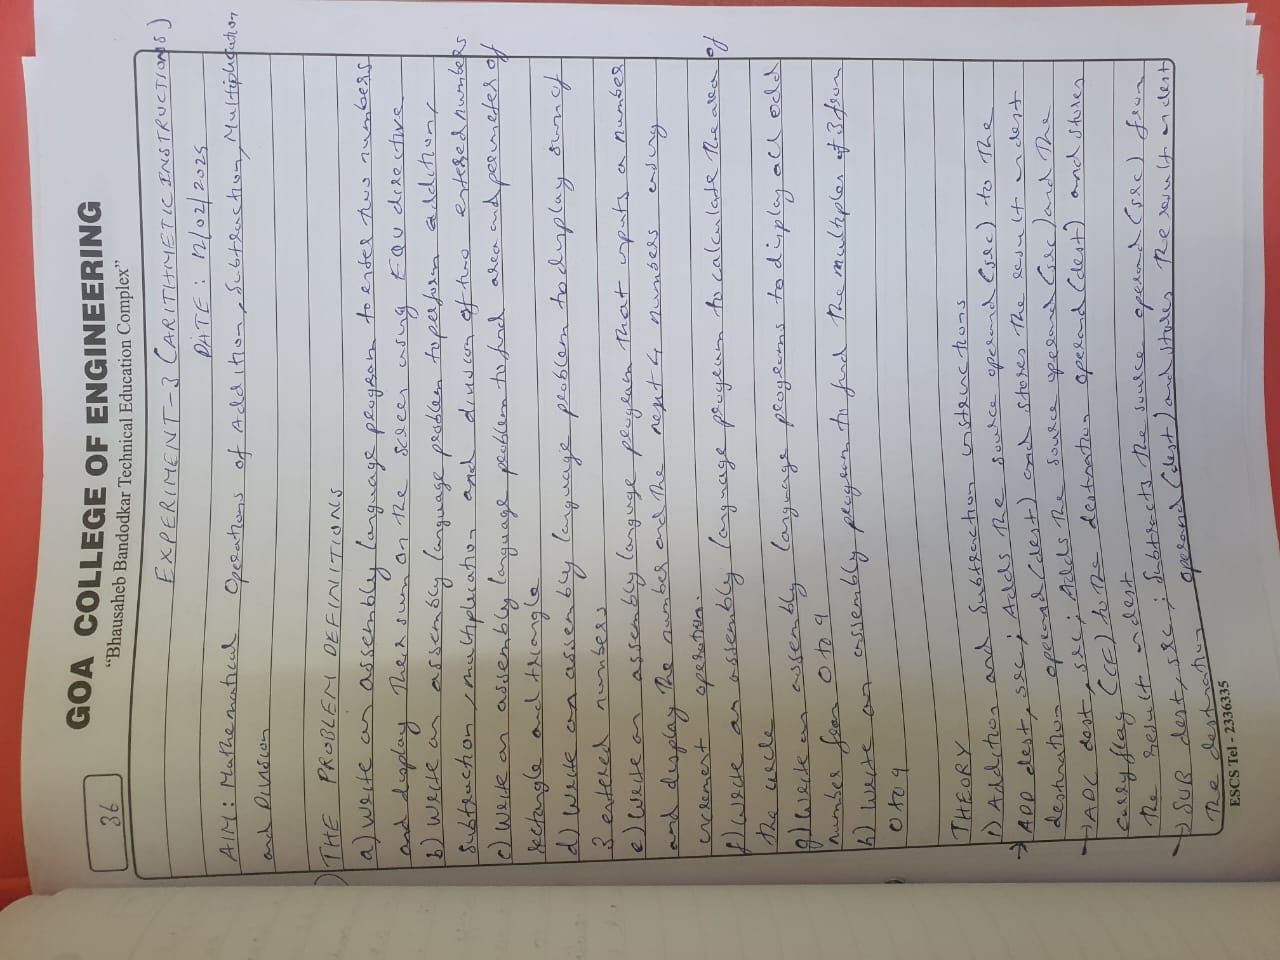 GOA COLLEGE OF ENGINEERING
"Bhausaheb Bandodkar Technical Education Complex"
36
EXPERIMENT-3 (ARITHMETIC INSTRUCTIONS)
DATE: 12/02/2025
AIM: Mathematical Operations of Addition, Subtraction, Multiplication
and Division
THE PROBLEM DEFINITIONS
a) Write an assembly language program to enter two numbers
and display their sum on the screen using EQU directive
b) Write an assembly language problem to perform addition,
subtraction, multiplication and division of two entered numbers
c) Write an assembly language problem to find area and perimeter of
rectangle and triangle
d) Write an assembly language problem to display sum of
3 entered numbers
e) Write an assembly languge program that inputs a number
and display the number and the next 4 numbers using
increment operation.
f) Write an assembly language program to calculate the area of
the circle
g) Write an assembly language programs to display all odd
number from 0 to 9
h) Write an assembly program to find the multiples of 3 from
0 to 9
THEORY
1) Addition and Subtraction instructions
→ ADD dest, src; Adds the source operand (src) to the
destination operand (dest) and stores the result in dest
→ ADC dest, src; Adds the source operand (src) and the
carry flag (CF) to the destination operand (dest) and stores
the result in dest
→ SUB dest, src; Subtracts the source operand (src) from
the destination operand (dest) and stores the result in dest
ESCS Tel - 2336335